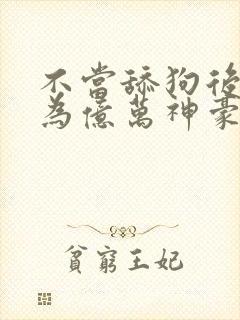 不當舔狗後
為億萬神豪
貧窮王妃